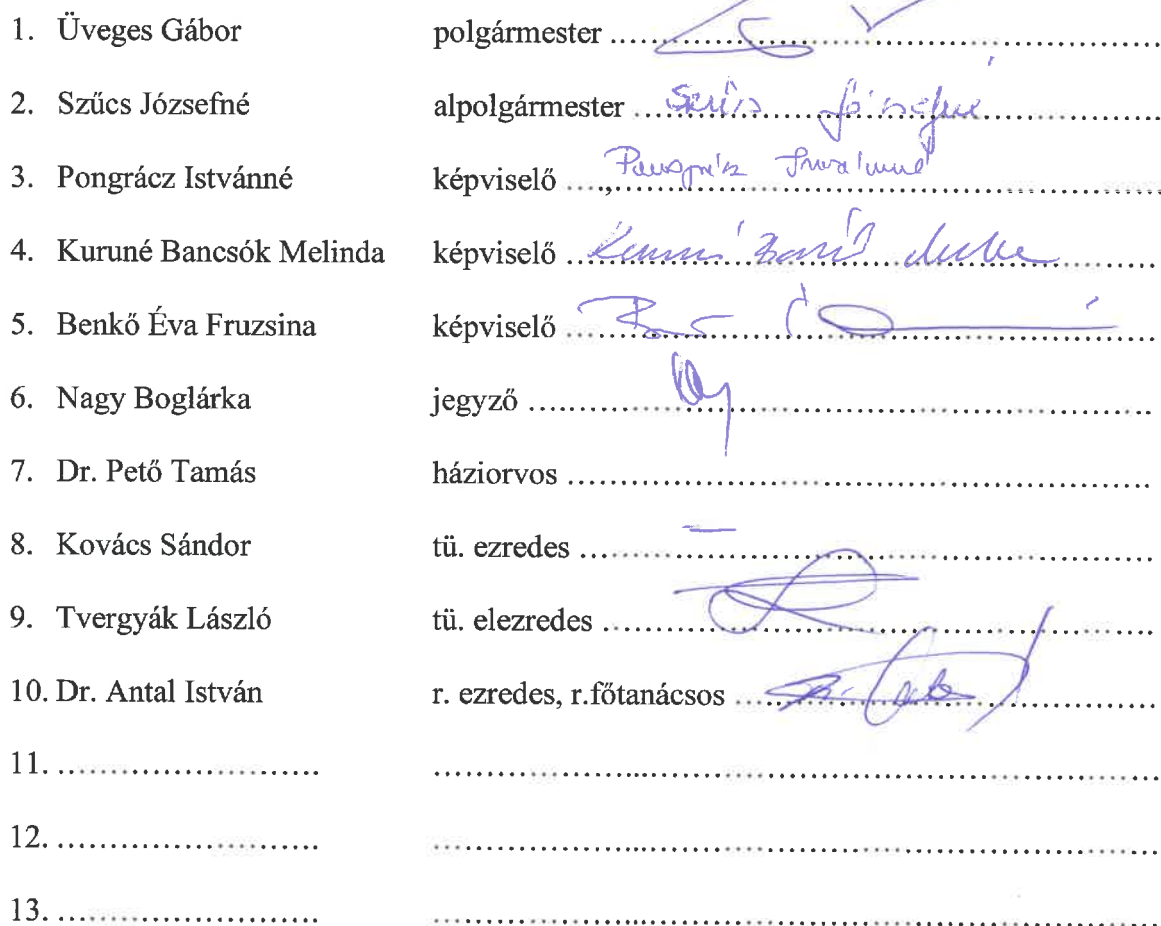 1. Üveges Gábor polgármester ........................................
2. Szűcs Józsefné alpolgármester ... Szűcs Józsefné ...................
3. Pongrácz Istvánné képviselő ... Pongrácz Istvánné ...................
4. Kuruné Bancsók Melinda képviselő ........................................
5. Benkő Éva Fruzsina képviselő ........................................
6. Nagy Boglárka jegyző ........................................
7. Dr. Pető Tamás háziorvos ........................................
8. Kovács Sándor tü. ezredes ... – ...................
9. Tvergyák László tü. elezredes ........................................
10. Dr. Antal István r. ezredes, r.főtanácsos ........................................
11. ........................ ........................................
12. ........................ ........................................
13. ........................ ........................................